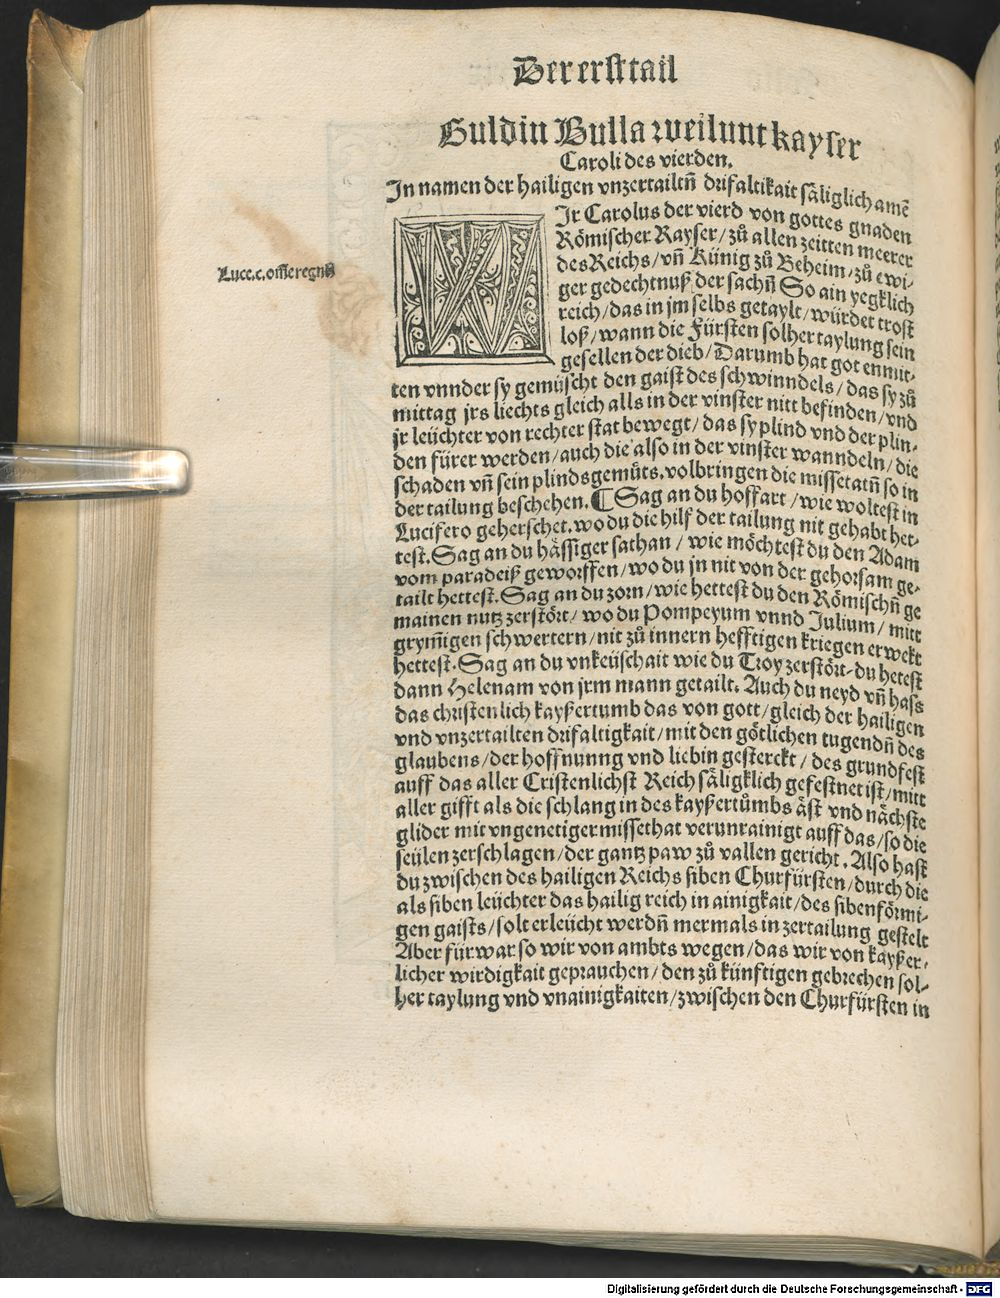 Der erst tail
Guldin Bulla weilunt kayser
Caroli des vierden.
In namen der hailigen vnzertailtn̄ drifaltikait säliglich amē
Luce.c. om̄e regnū
WIr Carolus der vierd von gottes gnaden
Römischer Kayser / zů allen zeitten meerer
des Reichs / vn̄ Künig zů Beheim / zů ewi-
ger gedechtnuß der sachn̄ So ain yegklich
reich / das in jm selbs getaylt / würdet trost
loß / wann die Fürsten solher taylung sein
gesellen der dieb / Darumb hat got enmit-
ten vnnder sy gemüscht den gaist des schwinndels / das sy zů
mittag jrs liechts gleich alls in der vinster nitt befinden / vnd
jr leüchter von rechter stat bewegt / das sy plind vnd der plin-
den fürer werden / auch die also in der vinster wanndeln / die
schaden vn̄ sein plindsgemůts. volbringen die missetatn̄ so in
der tailung beschehen. ¶ Sag an du hoffart / wie woltest in
Lucifero geherschet. wo du die hilf der tailung nit gehabt het-
test. Sag an du hässiger sathan / wie möchtest du den Adam
vom paradeiß geworffen / wo du jn nit von der gehorsam ge-
tailt hettest. Sag an du zorn / wie hettest du den Römischn̄ ge
mainen nutz zerstört / wo du Pompeyum vnnd Julium / mitt
grym̄igen schwertern / nit zů innern hefftigen kriegen erwekt
hettest. Sag an du vnkeüschait wie du Troy zerstört- du hetest
dann Helenam von jrm mann getailt. Auch du neyd vn̄ hass
das christenlich kayßertumb das von gott / gleich der hailigen
vnd vnzertailten drifaltigkait / mit den götlichen tugendn̄ des
glaubens / der hoffnunng vnd liebin gesterckt / des grundfest
auff das aller Cristenlichst Reich säligklich gefestnet ist / mitt
aller gifft als die schlang in des kayßertůmbs äst vnd nächste
glider mit vngenetiger missethat verunrainigt auff das / so die
seülen zerschlagen / der gantz paw zů vallen gericht. Also hast
du zwischen des hailigen Reichs siben Churfürsten / durch die
als siben leüchter das hailig reich in ainigkait / des sibenförmi-
gen gaists / solt erleücht werdn̄ mermals in zertailung gestelt
Aber fürwar so wir von ambts wegen / das wir von kayßer-
licher wirdigkait geprauchen / den zů künftigen gebrechen sol-
her taylung vnd vnainigkaiten / zwischen den Churfürsten in
Digitalisierung gefördert durch die Deutsche Forschungsgemeinschaft - DFG